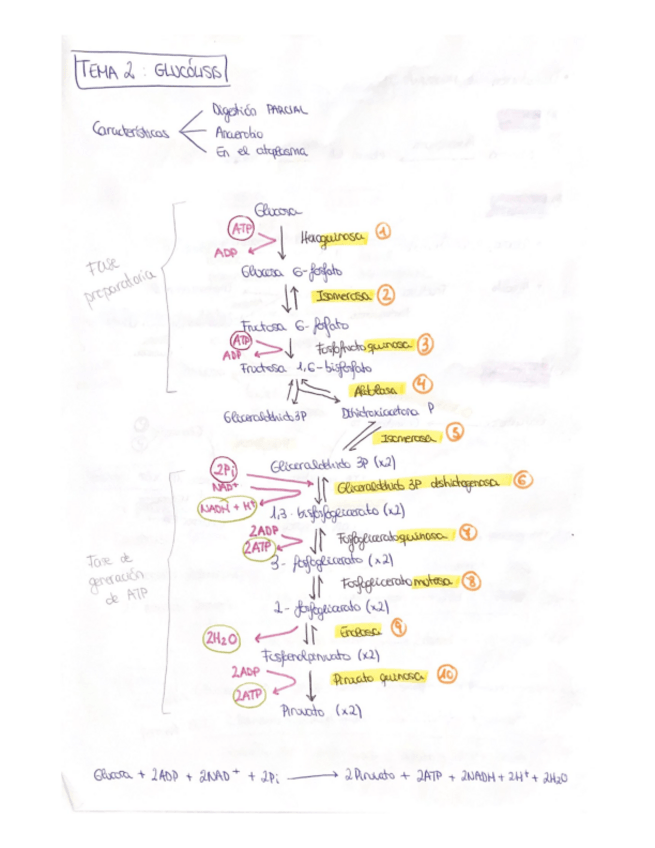 TEMA 2 : GLUCÓLISIS
Características
Digestión PARCIAL
Anaerobio
En el citoplasma
Fase preparatoria
Glucosa
ATP
ADP
Hexoquinasa 1
Glucosa 6-fosfato
Isomerasa 2
Fructosa 6-fosfato
ATP
ADP
Fosfofructoquinasa 3
Fructosa 1,6-bisfosfato
Aldolasa 4
Gliceraldehido 3P
Dihidroxiacetona P
Isomerasa 5
Fase de generación de ATP
Gliceraldehido 3P (x2)
2Pi
NAD+
NADH + H+
Gliceraldehido 3P dshidrogenasa 6
1,3-bisfosfoglicerato (x2)
2ADP
2ATP
Fosfogliceratoquinasa 7
3-fosfoglicerato (x2)
Fosfoglicerato mutasa 8
2-fosfoglicerato (x2)
2H2O
Enolasa 9
Fosfoenolpiruvato (x2)
2ADP
2ATP
Piruvato quinasa 10
Piruvato (x2)
Glucosa + 2ADP + 2NAD+ + 2Pi → 2Piruvato + 2ATP + 2NADH + 2H+ + 2H2O